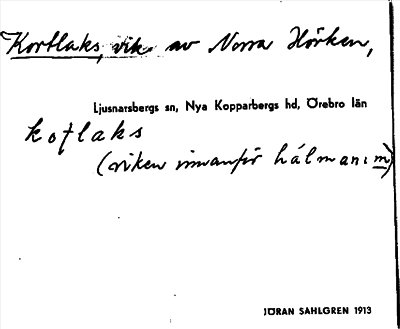 Kortlaks, vik av Norra Hörken,
Ljusnarsbergs sn, Nya Kopparbergs hd, Örebro län
kotlaks
(viken innanför hálmanım)
JÖRAN SAHLGREN 1913